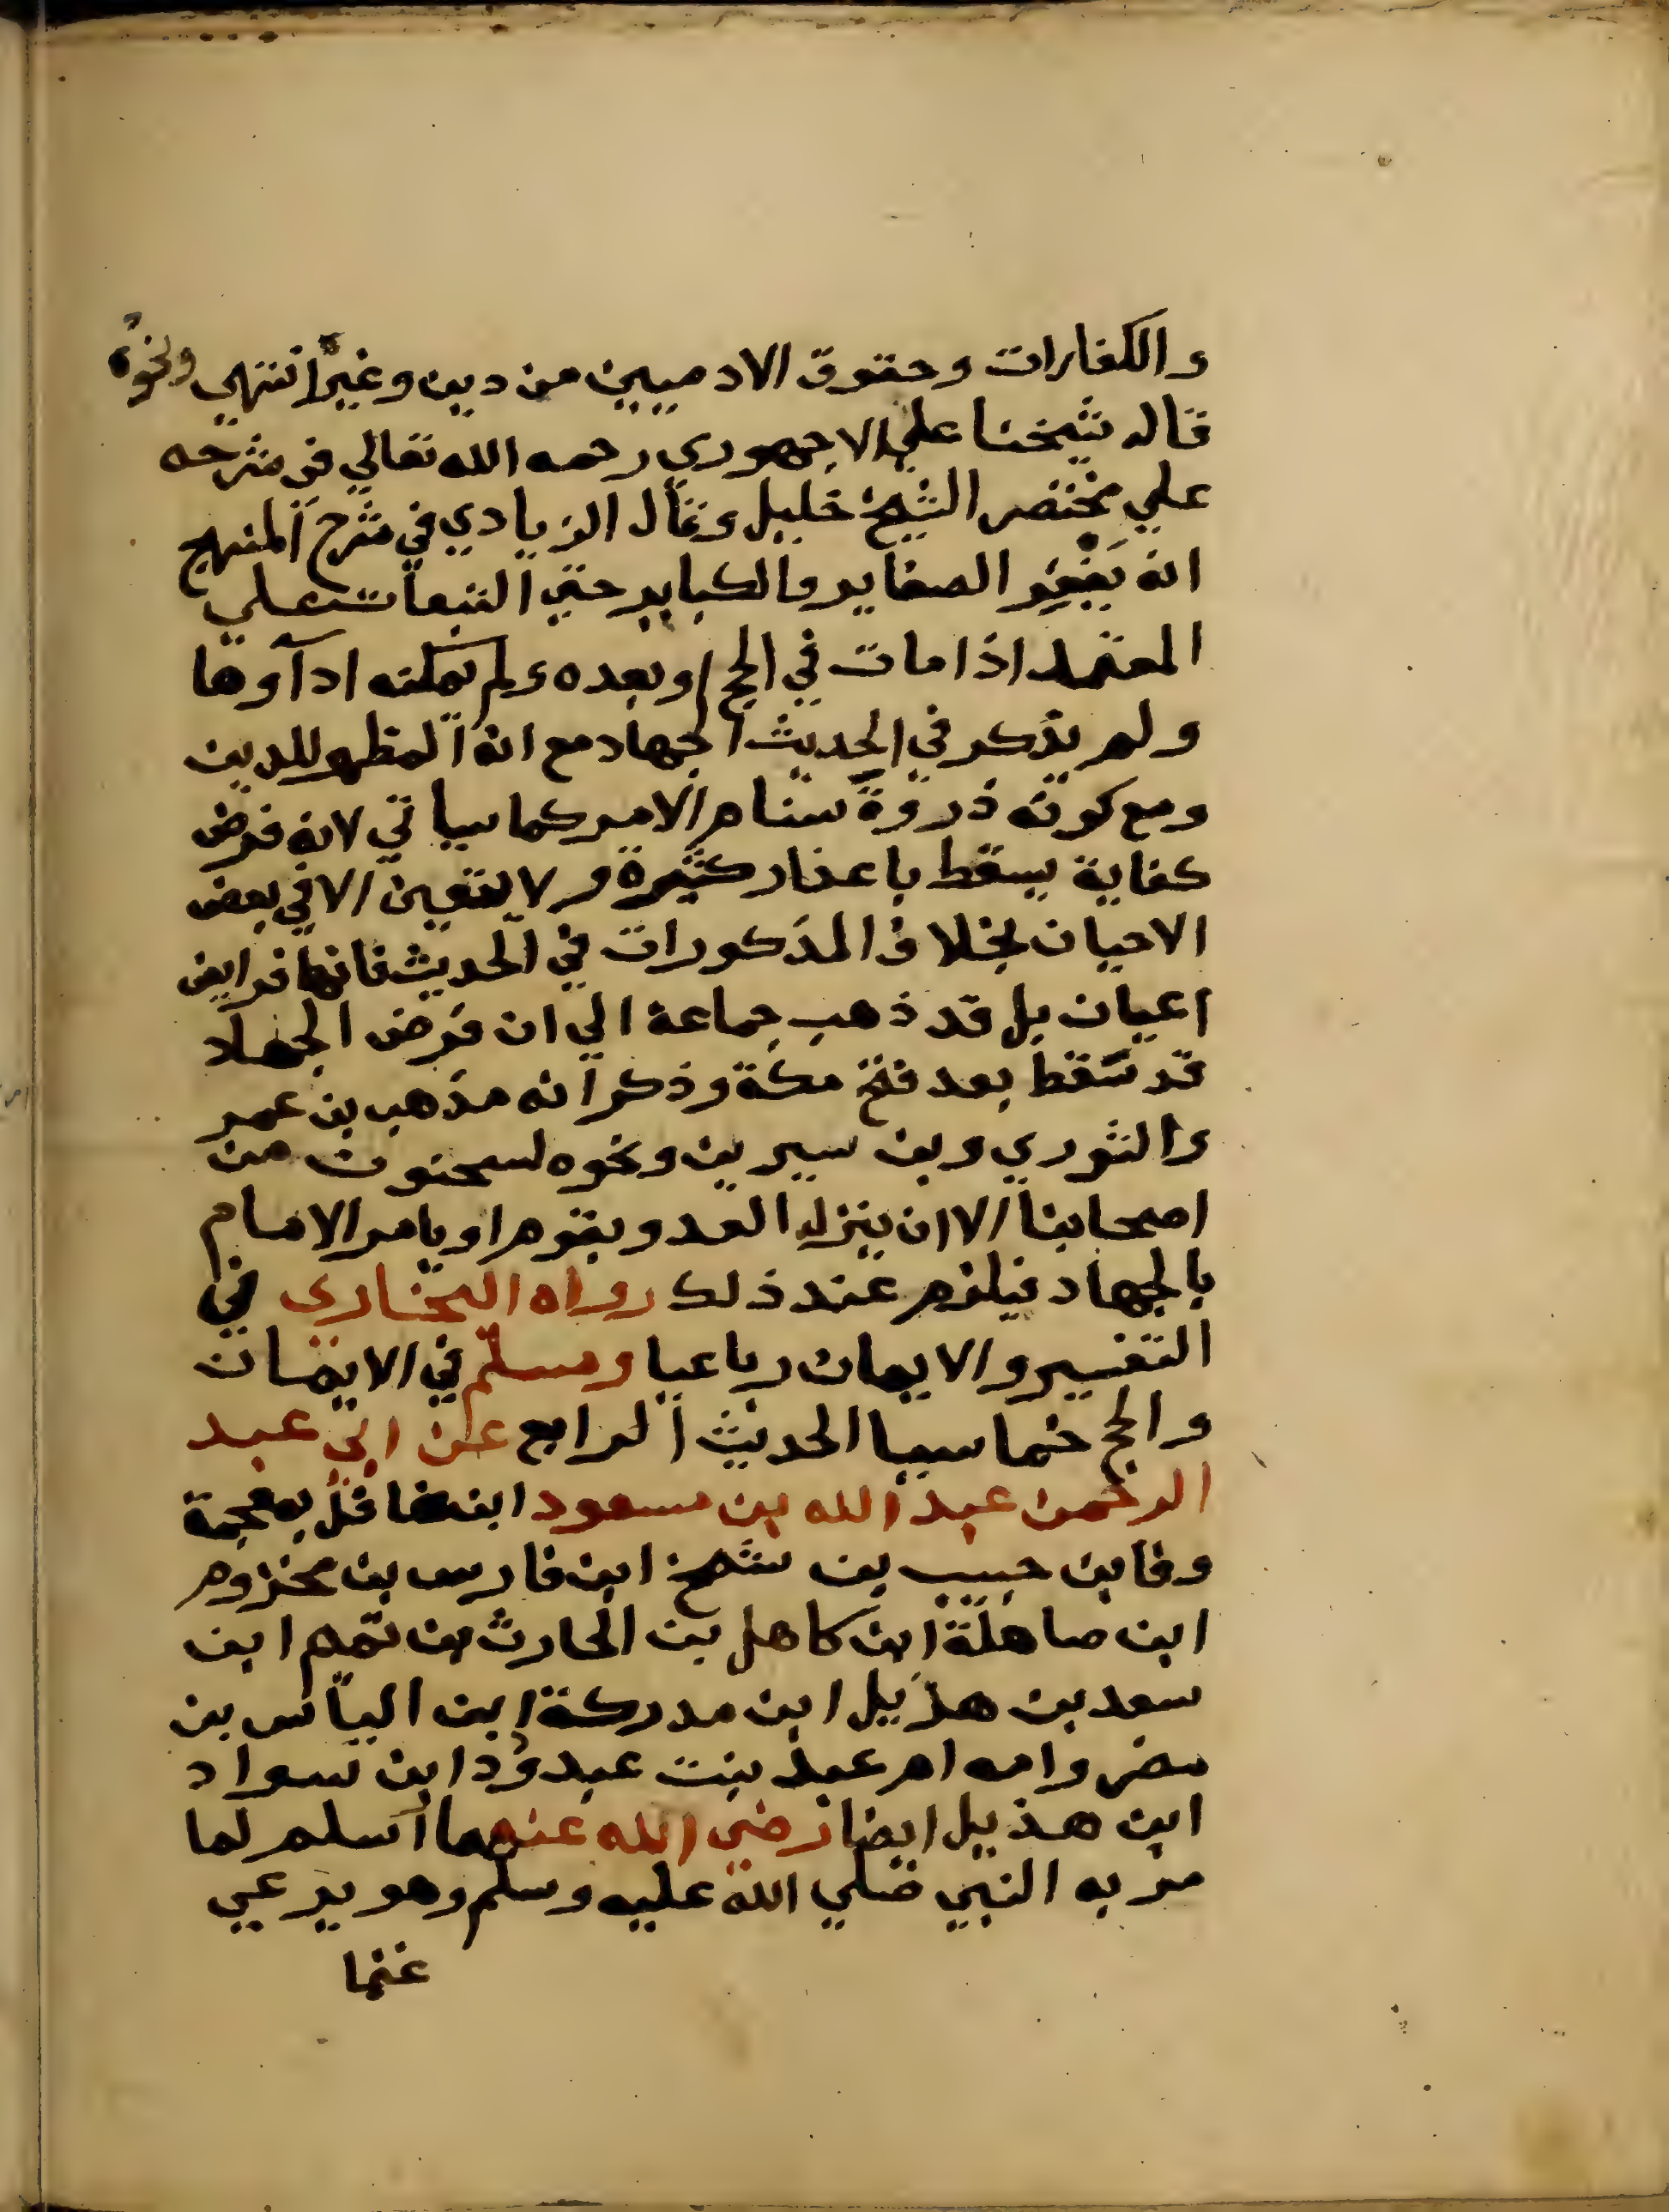 والكفارات وحقوق الادميين من دين وغيرانتهي ونحوه
قال شيخنا علي الاجهوري رحمه الله تعالي في شرحه
علي مختصر الشيخ خليل وقال الزيادي في شرح المنهج
انه يغفر الصغاير والكباير حتي التبعات علي
المعتمد اذا مات في الحج او بعده ولم يمكنه ادآوها
ولم يذكر في الحديث الجهاد مع انه المظهر للدين
ومع كونه ذروة سنام الامر كما سياتي لانه فرض
كفاية يسقط باعذار كثيرة ولا يتعين الا في بعض
الاحيان بخلاف المذكورات في الحديث فانها فرايض
اعيان بل قد ذهب جماعة الي ان فرض الجهاد
قد سقط بعد فتح مكة وذكر انه مذهب بن عمر
والثوري وبن سيرين ونحوه لسحنون من
اصحابنا الا ان ينزل العدو بقوم او يامر الامام
بالجهاد فيلزم عند ذلك رواه البخاري في
التفسير والايمان رباعيا ومسلم في الايمان
والحج خماسيا الحديث الرابع عن ابي عبد
الرحمن عبد الله بن مسعود ابن غافل بمعجمة
وفا بن حبيب بن شمخ ابن فارس بن مخزوم
ابن صاهلة ابن كاهل بن الحارث بن تميم ابن
سعد بن هذيل ابن مدركة ابن الياس بن
مضر وامه ام عبد بنت عبد ود ابن سواد
ابن هذيل ايضا رضي الله عنهما اسلم لما
مر به النبي صلي الله عليه وسلم وهو يرعي
غنما